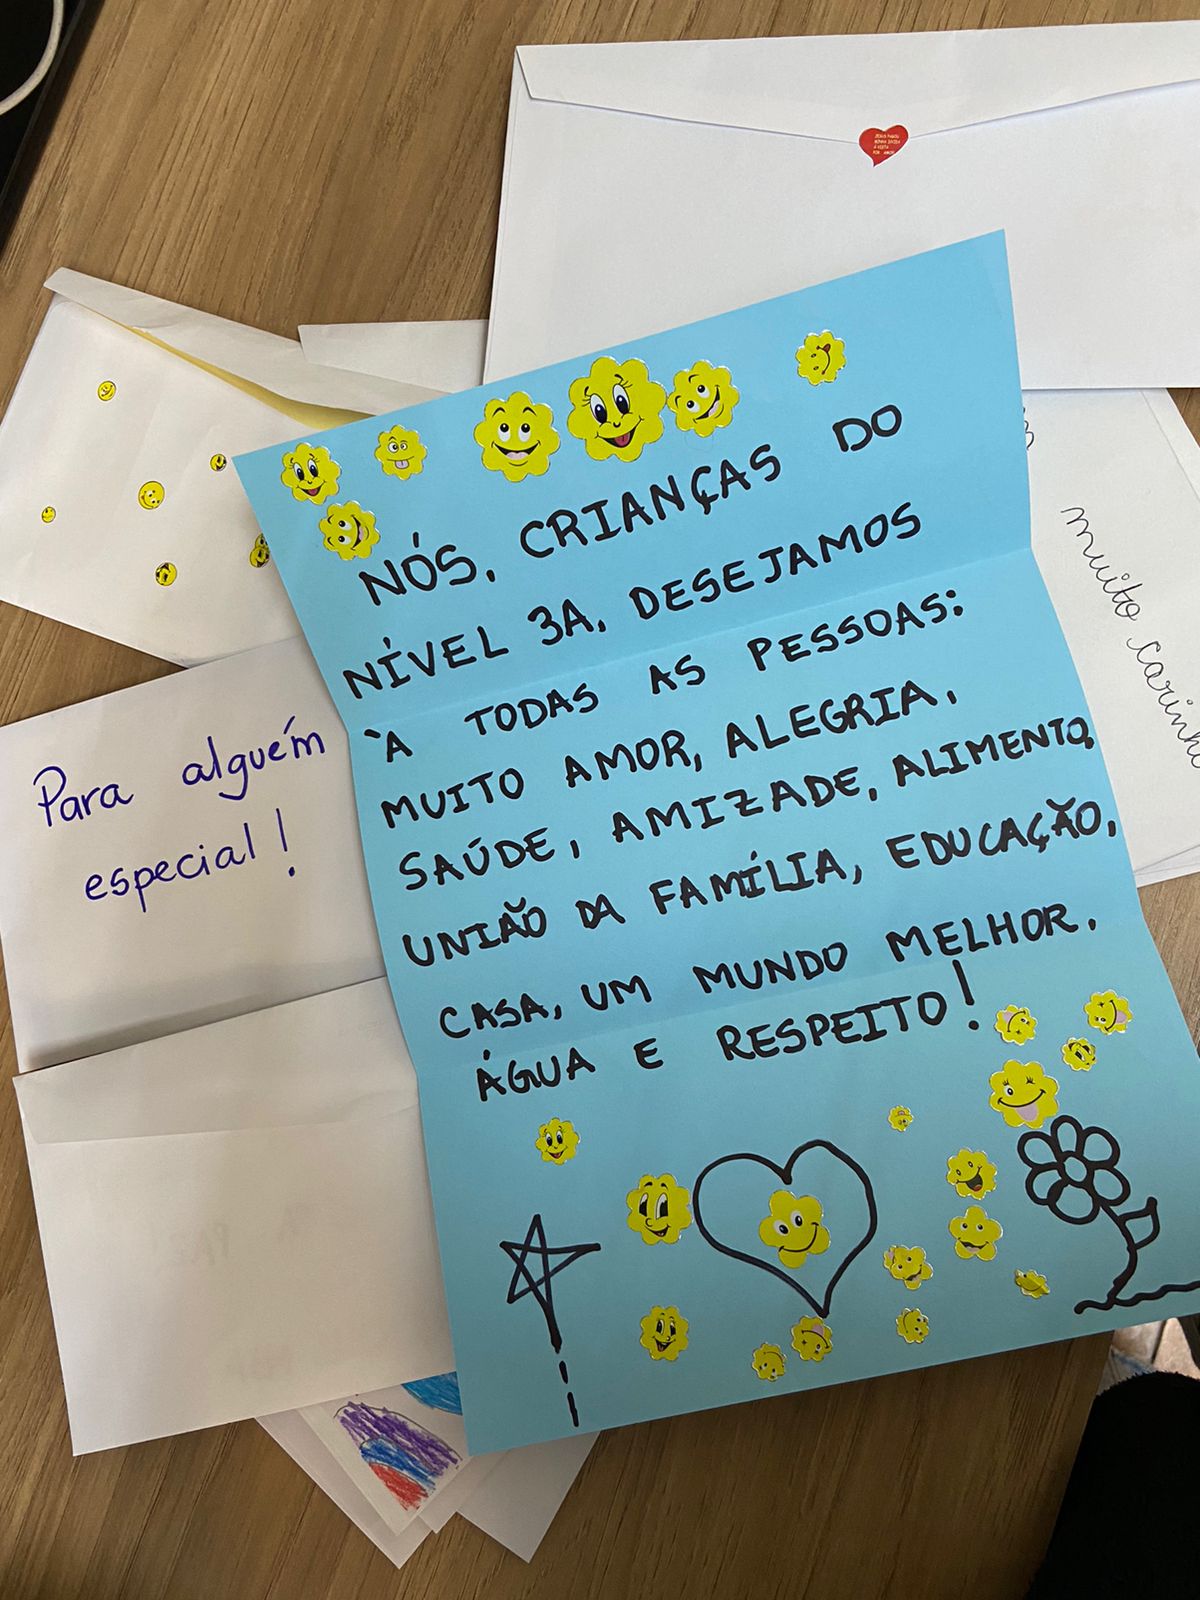 NÓS, CRIANÇAS DO
NÍVEL 3A, DESEJAMOS
À TODAS AS PESSOAS:
MUITO AMOR, ALEGRIA,
SAÚDE, AMIZADE, ALIMENTO,
UNIÃO DA FAMÍLIA, EDUCAÇÃO,
CASA, UM MUNDO MELHOR,
ÁGUA E RESPEITO!
Para alguém
especial!
muito carinho